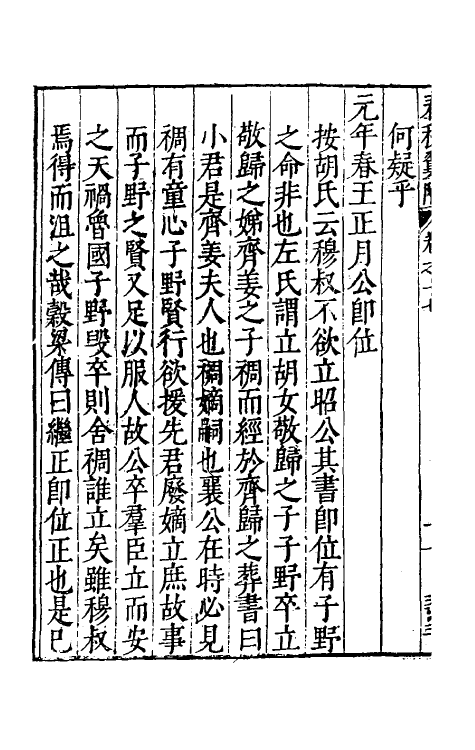 春秋翼附 卷之十
何疑乎
元年春王正月公卽位
按胡氏云穆叔不欲立昭公其書卽位有子野
之命非也左氏謂立胡女敬歸之子子野卒立
敬歸之娣齊姜之子稠而經於齊歸之葬書曰
小君是齊姜夫人也稠嫡嗣也襄公在時必見
稠有童心子野賢行欲援先君廢嫡立庶故事
而子野之賢又足以服人故公卒羣臣立而安
之天禍魯國子野毀卒則舍稠誰立矣雖穆叔
焉得而沮之哉穀梁傳曰繼正卽位正也是已